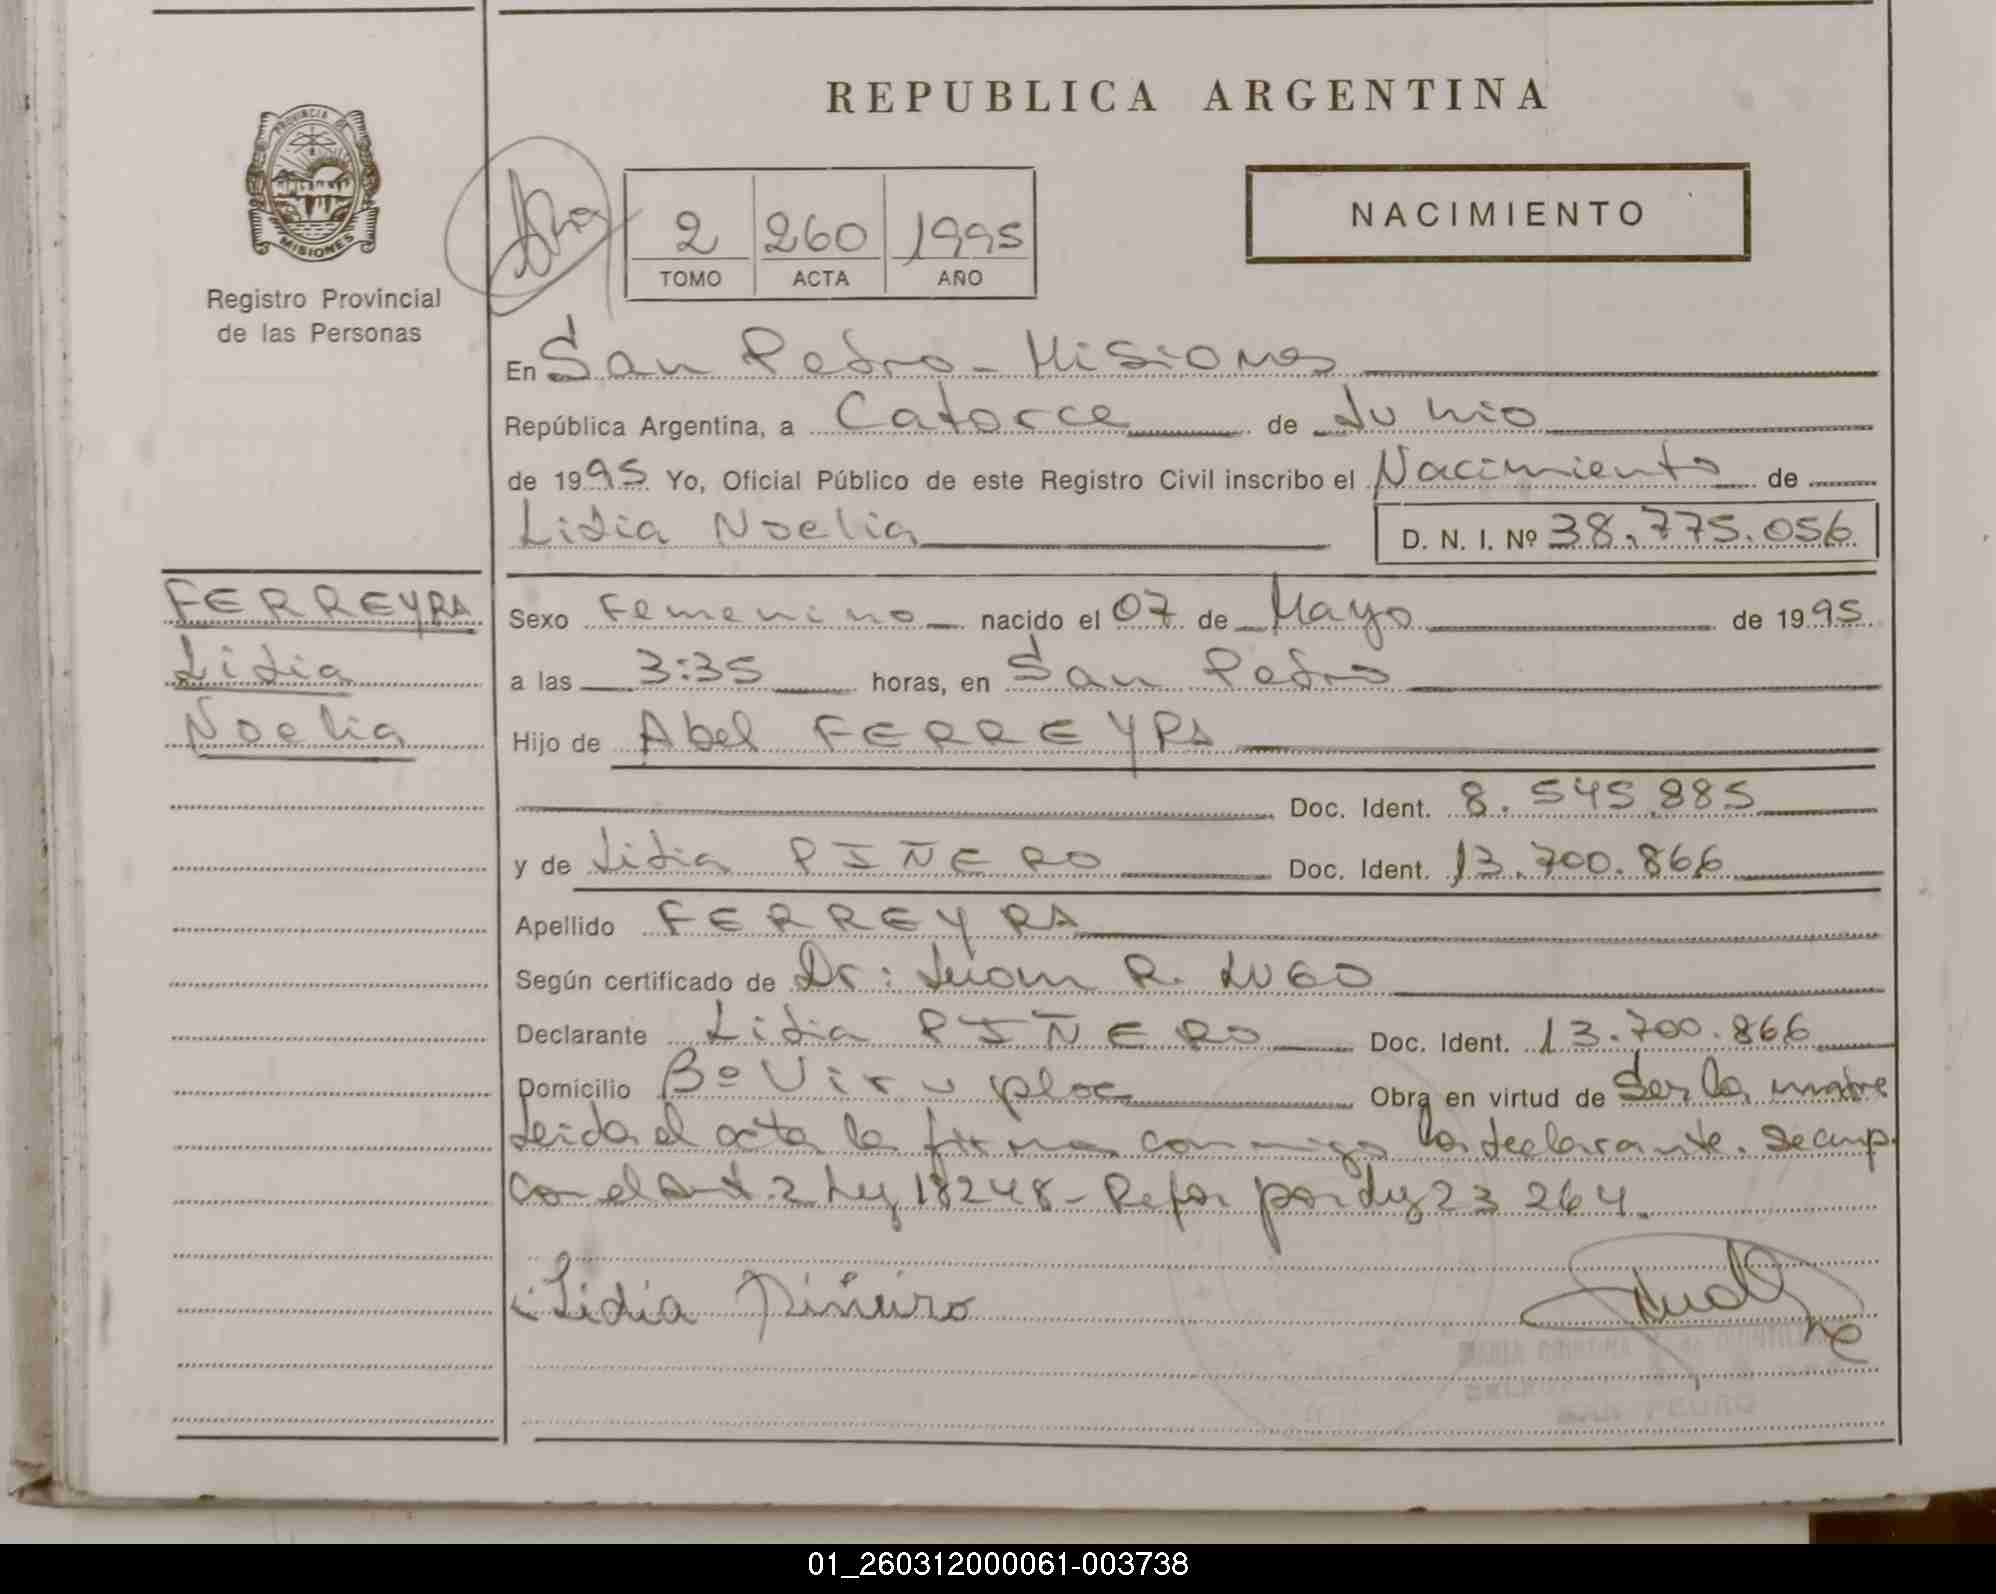 REPUBLICA ARGENTINA
PROVINCIA DE
MISIONES
Registro Provincial
de las Personas
2 260 1995
TOMO ACTA AÑO
NACIMIENTO
En San Pedro - Misiones
República Argentina, a Catorce de Junio
de 1995 Yo, Oficial Público de este Registro Civil inscribo el Nacimiento de
Lidia Noelia D. N. I. Nº 38.775.056
FERREYRA
Lidia
Noelia
Sexo Femenino nacido el 07 de Mayo de 1995
a las 3:35 horas, en San Pedro
Hijo de Abel FERREYRA
Doc. Ident. 8.545.885
y de Lidia PIÑERO Doc. Ident. 13.700.866
Apellido FERREYRA
Según certificado de Dr: Juan R. LUGO
Declarante Lidia PIÑERO Doc. Ident. 13.700.866
Domicilio Bº Obra en virtud de Ser la madre
Leida el acta la firma conmigo la declarante. Se cump.
con el Art. 2 Ley 18248 - Refor por Ley 23264.
Lidia Piñeiro
SAN PEDRO
01_260312000061-003738